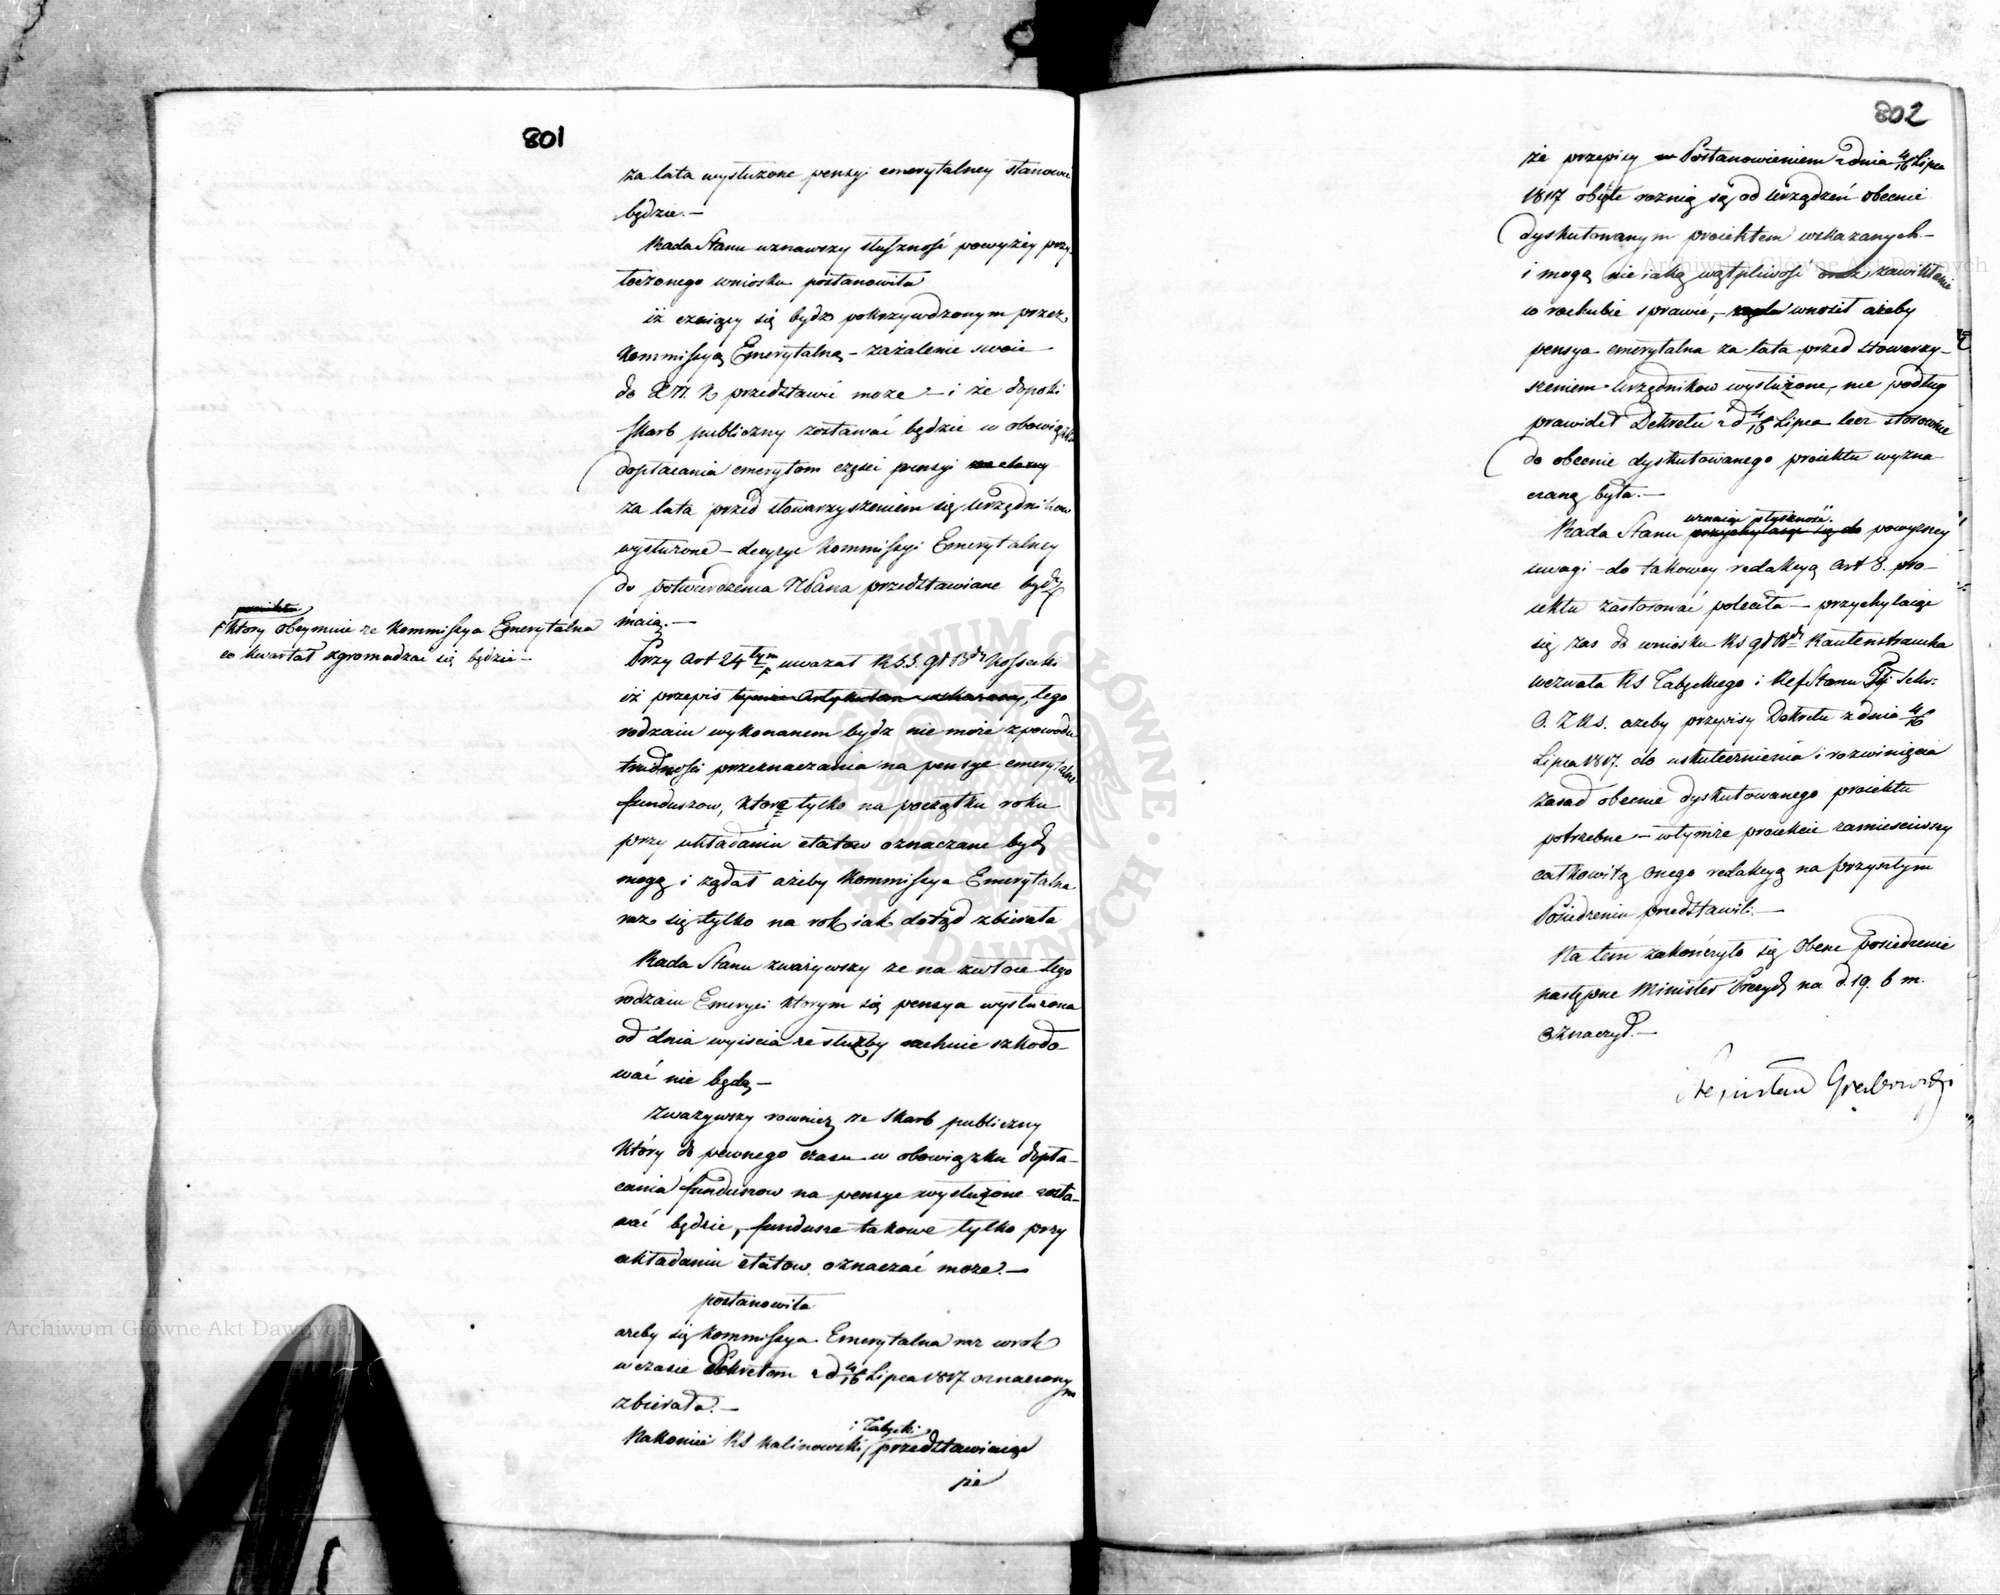 801
za lata wysłużone pensyi emerytalney stanowić
będzie.—
Rada Stanu uznawszy słuszność powyżey przy-
toczonego wniosku postanowiła
iż czujący się bydź pokrzywdzonym przez
Kommissyą Emerytalną – zażalenie swoie
do przedstawić może – i że dopoki
Skarb publiczny zostawać będzie w obowiązku
dopłacania emerytom części pensyi
za lata przed stowarzyszeniem się Urzędnikow
wysłużone – decyzye Kommissyi Emerytalney
do potwierdzenia przedstawiane bydź
maią.—
Przy Art 24tym uważał RSS. Kossecki
iż przepis tymże Artykułem wskazany, tego
rodzaiu wykonanem bydz nie może z powodu
trudności przeznaczania na pensye emerytalne
funduszow, które tylko na początku roku
przy układaniu etatow oznaczane bydź
mogą i żądał ażeby Kommissya Emerytalna
raz się tylko na rok iak dotąd zbierała
Rada Stanu zważywszy ze na zwłoce tego
rodzaiu Emeryci ktorym się pensya wysłużona
od dnia wyiścia ze służby rachuie szkodo-
wać nie będą –
Zważywszy rownież ze Skarb publiczny
Który do pewnego czasu w obowiązku dopła-
cania funduszow na pensye wysłużone zosta-
wać będzie, fundusze takowe tylko przy
układaniu etatow oznaczać może.—
postanowiła
ażeby się Kommissya Emerytalna raz w rok
w czasie Dekretem z d 4/16 Lipca 1817 oznaczonym
zbierała.—
i Zabęcki
Nakoniec RS Kalinowski przedstawiaiąc
że
F który obeymuie ze Kommissya Emerytalna
co kwartał zgromadzać się będzie –
802
że przepisy Postanowieniem z dnia 4/16 Lipca
1817 obięte roznią się od Urządzeń obecnie
dyskutowanym proiektem wskazanych –
i mogą nieiaką wątpliwość oraz zawikłanie
w rachubie sprawić, – wnosił ażeby
pensya emerytalna za lata przed stowarzy-
szeniem Urzędnikow wysłużone, nie podług
prawideł Dekretu z d 4/16 Lipca lecz stosownie
do obecnie dyskutowanego proiektu wyzna-
czaną była.—
uznaiąc słuszność
Rada Stanu przychylaiąc się do powyższey
uwagi – do takowey redakcyą Art 8. pro-
iektu zastosować poleciła – przychylaiąc
się zas do wniosku RS Rautenstraucha
wezwała RS Zabęckiego i Ref Stanu
ażeby przepisy Dekretu z dnia 4/16
Lipca 1817. do uskutecznienia i rozwinięcia
zasad obecnie dyskutowanego proiektu
potrzebne – w tymże proiekcie zamieściwszy
całkowitą onego redakcyą na przyszłym
Posiedzeniu przedstawili.—
Na tem zakończyło się Obecne posiedzenie
następne Minister Prezyd na d. 19. b m.
Oznaczył.—
Stanisław Grabowski
Archiwum Główne Akt Dawnych
Archiwum Główne Akt Dawnych
ARCHIWUM GŁÓWNE AKT DAWNYCH